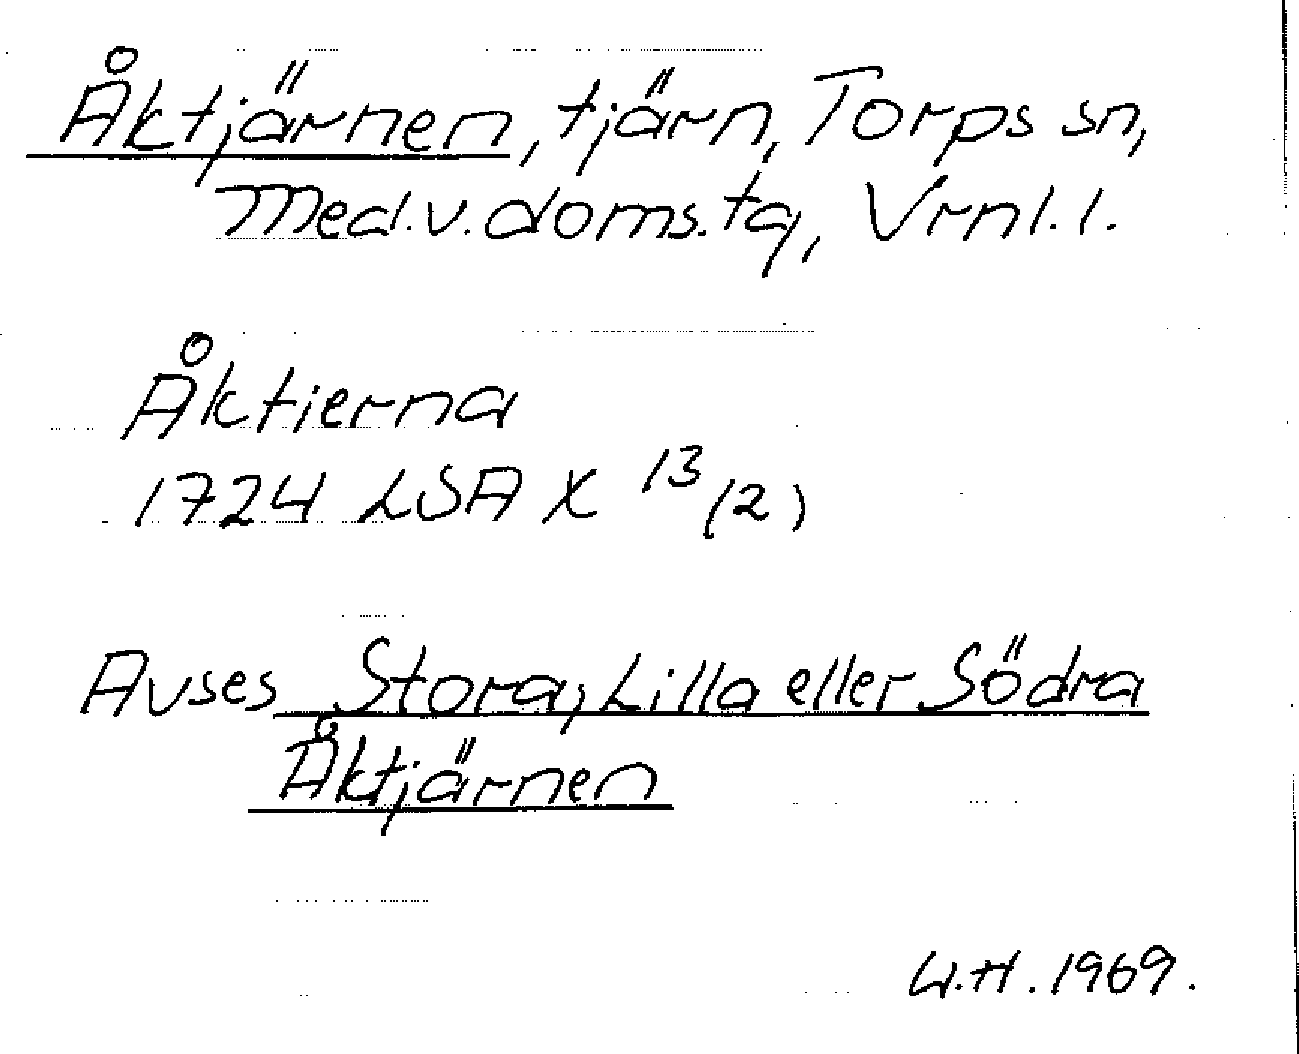 Åktjärnen, tjärn, Torps sn,
Med.v.doms.tg, Vrnl.l.
Åktierna
1724 LSA X 13 (2)
Avses Stora, Lilla eller Södra
Åktjärnen
W.H. 1969.